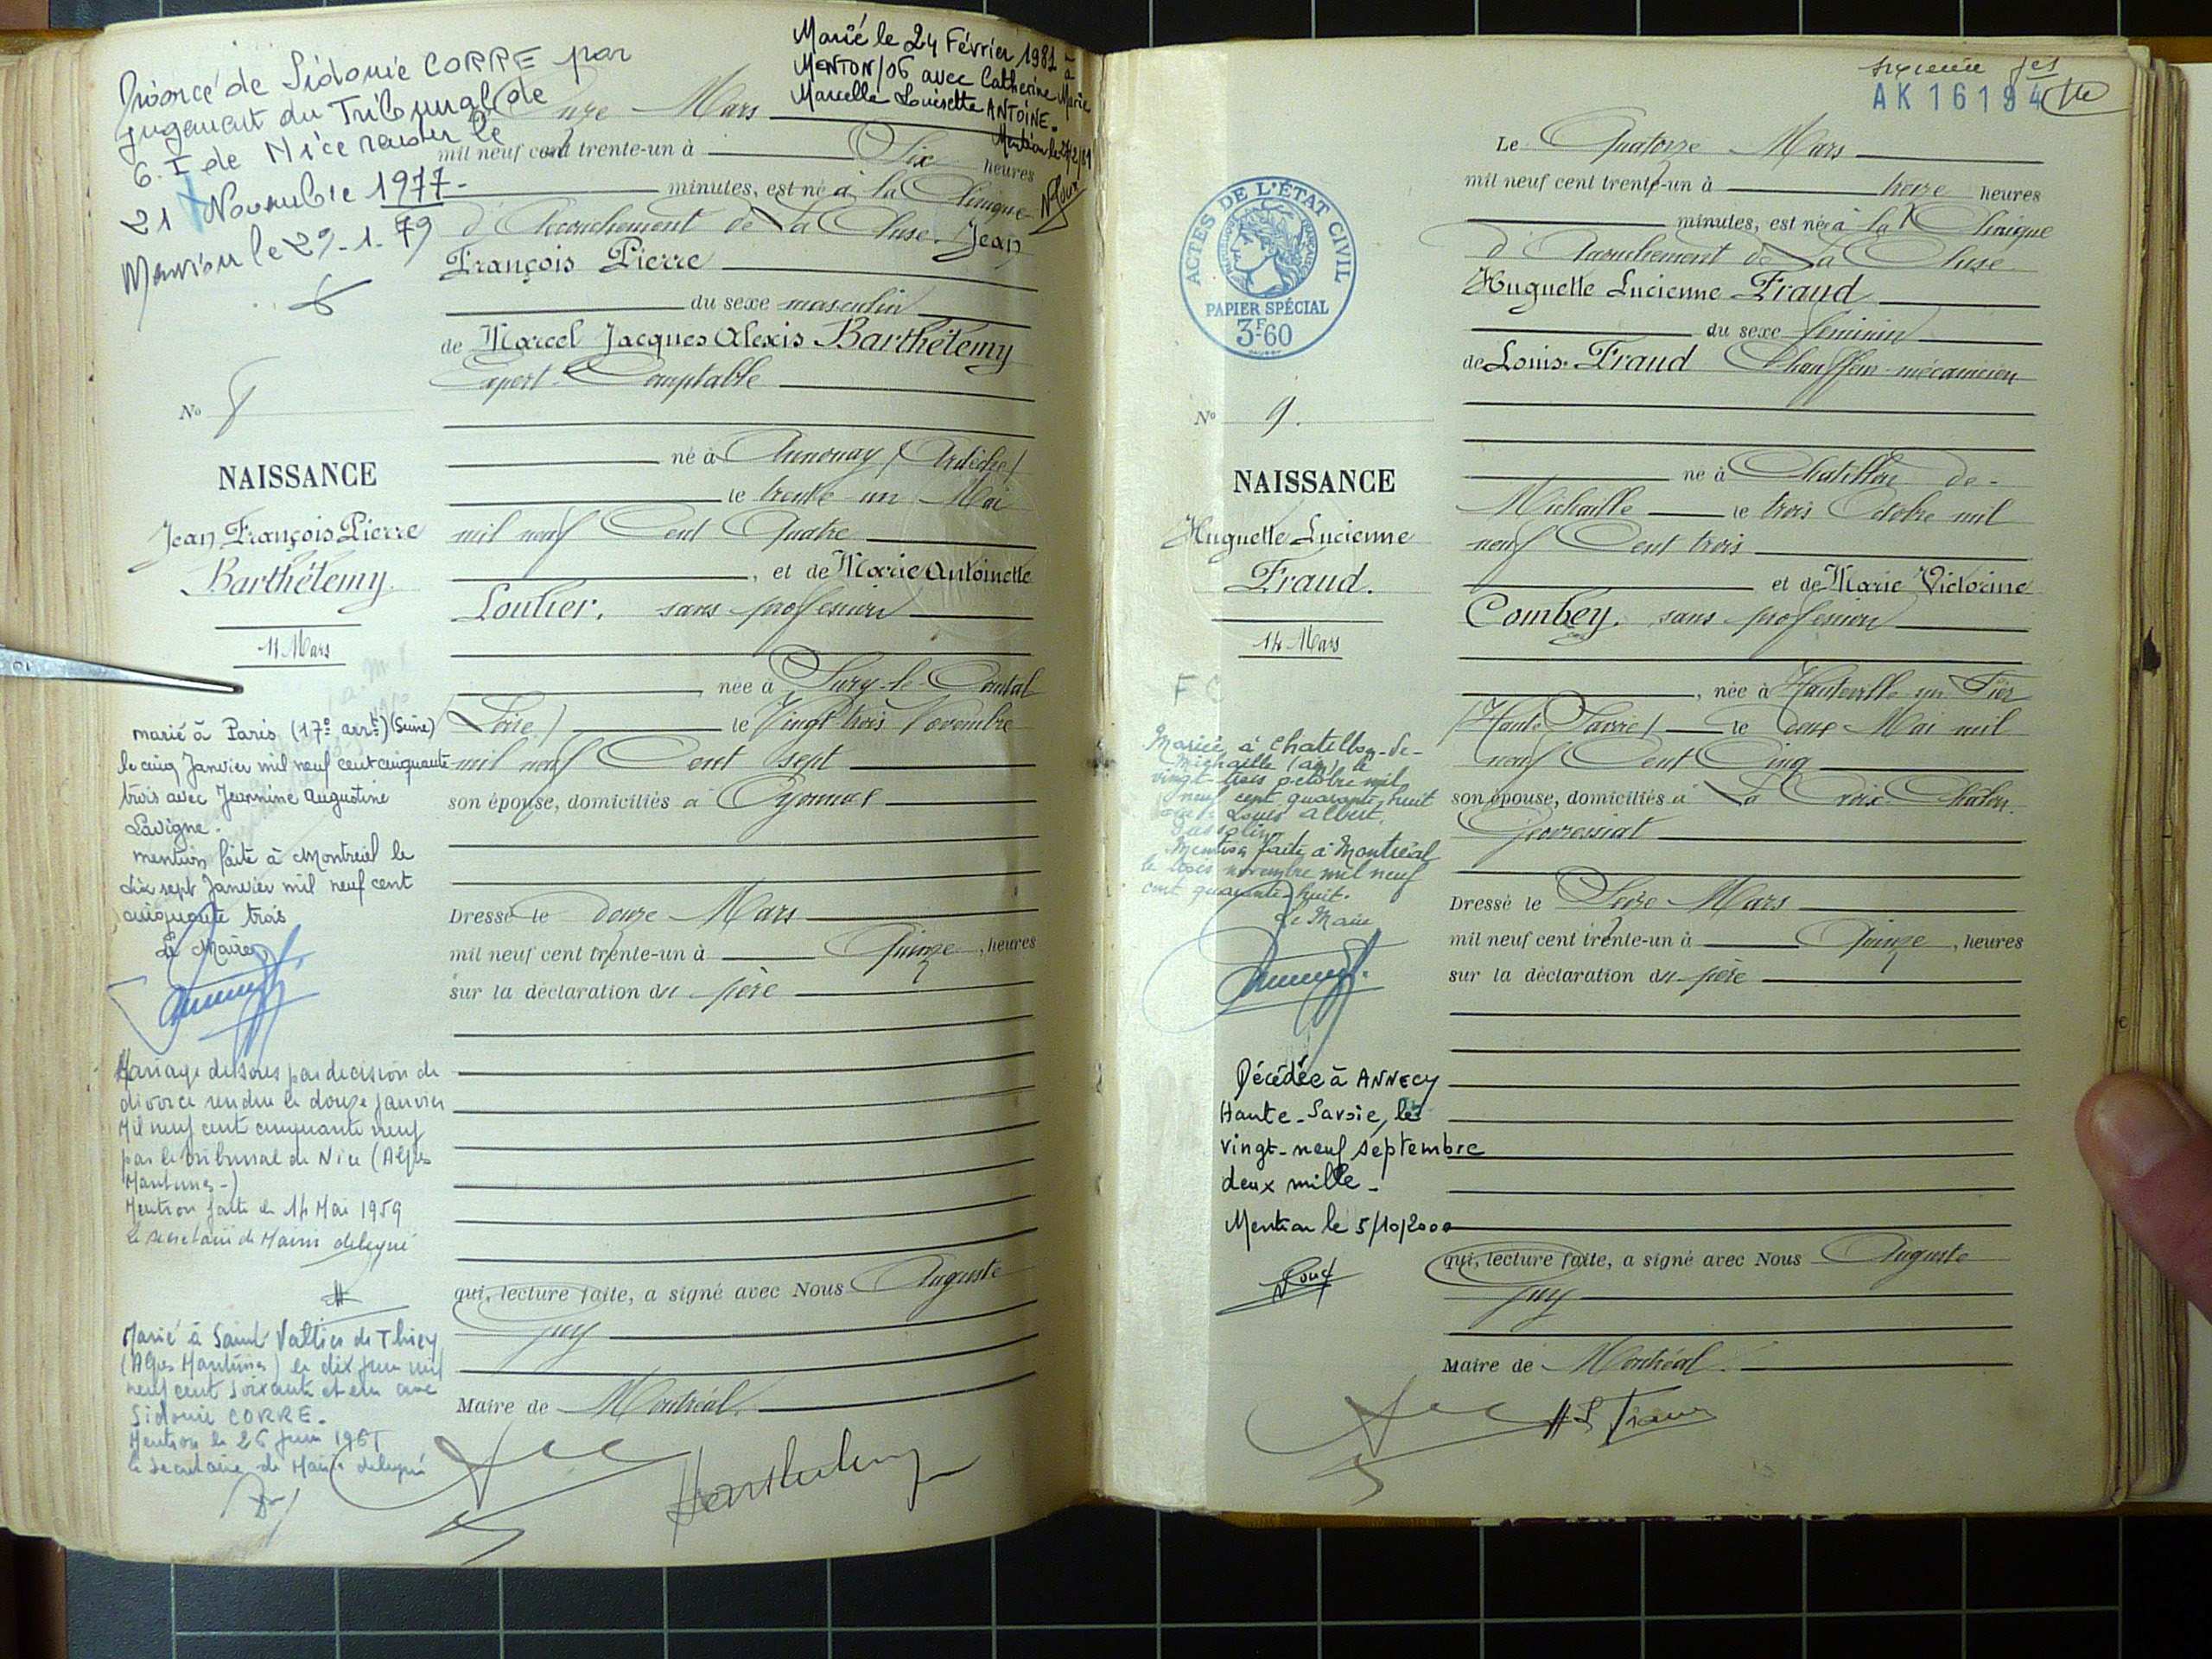 Divorcé de Sidonie CORRE par
jugement du Tribunal de
G. I de Nice rendu le
21 Novembre 1977-
Mention le 29-1-79
Marié le 24 Février 1981 à
MENTON/06 avec Catherine Marie
Marcelle Louisette ANTOINE.
Mention le
Onze Mars
mil neuf cent trente-un à Six heures
minutes, est né à la Clinique
d'Accouchement de La Cluse. Jean
François Pierre
du sexe masculin
de Marcel Jacques Alexis Barthélemy
Expert-Comptable
né à Annonay (Ardèche)
le trente un Mai
mil neuf Cent Quatre
, et de Marie Antoinette
Loulier. sans profession
née à Sury-le-Comtal
(Loire) le Vingt trois Novembre
mil neuf Cent sept
son épouse, domiciliés à Oyonnax
Dressé le douze Mars
mil neuf cent trente-un à Quinze, heures
sur la déclaration du père
qui, lecture faite, a signé avec Nous Auguste
Guy
Maire de Montréal.
No 8
NAISSANCE
Jean François Pierre
Barthélemy.
11 Mars
marié à Paris (17e arrt) (Seine)
le cinq Janvier mil neuf cent cinquante
trois avec Jeannine Augustine
Lavigne.
mention faite à Montréal le
dix sept Janvier mil neuf cent
cinquante trois
Le Maire
Mariage dissous par decision de
divorce rendue le douze janvier
Mil neuf cent cinquante neuf
par le tribunal de Nice (Alpes
Maritimes-)
Mention faite le 14 Mai 1959
Le secretaire de Mairie delegué
Marié à Saint Vallier de Thiey
(Alpes Maritimes) le dix juin mil
neuf cent soixante et un avec
Sidonie CORRE.
Mention le 26 Juin 1961
le secretaire de Mairie delegué
feet
AK 16194
ACTES DE L'ÉTAT CIVIL
PAPIER SPÉCIAL
3F-60
Le Quatorze Mars
mil neuf cent trente-un à treize heures
minutes, est née à la Clinique
d'Accouchement de La Cluse
Huguette Lucienne Fraud
du sexe féminin
de Louis Fraud Chauffeur-mécanicien
né à Chatillon-de-
Michaille le trois Octobre mil
neuf Cent trois
et de Marie Victorine
Combey. sans profession
, née à Hauteville sur Fier
(Haute Savoie) le deux Mai mil
neuf Cent Cinq
son épouse, domiciliés à La Croix-Chalon.
Géovressiat
Dressé le Seize Mars
mil neuf cent trente-un à Quinze, heures
sur la déclaration du père
qui, lecture faite, a signé avec Nous Auguste
Guy
Maire de Montréal.
No 9.
NAISSANCE
Huguette Lucienne
Fraud.
14 Mars
Mariée à Chatillon-de-
Michaille (ain) le
vingt-trois octobre mil
neuf cent quarante huit
avec Louis Albert
Mention faite à Montréal
le trois novembre mil neuf
cent quarante huit.
Le Maire
Décédée à ANNECY
Haute-Savoie, le
vingt-neuf septembre
deux mille-
Mention le 5/10/2000